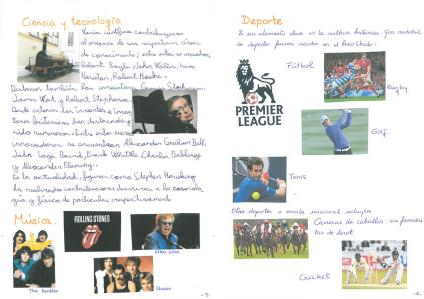 Ciencia y tecnología
Varios científicos contribuyeron
al avance de sus respectivas áreas
de conocimiento; entre estos se encuentran
Robert Boyle, John Wallis, Isaac
Newton, Robert Hooke.
Destacan también los inventores George Stephenson,
James Watt y Robert Stephenson.
Desde entonces los inventos e inventores
británicos han destacado y
sido numerosos. Entre estos
innovadores se encuentran Alexander Graham Bell,
John Logie Baird, Frank Whittle, Charles Babbage
y Alexander Fleming.
En la actualidad, figuras como Stephen Hawking
ha realizado contribuciones decisivas a la cosmología
y física de partículas respectivamente
Música.
ROLLING STONES
The Beatles
Elton John
Queen
-9-
Deporte
Es un elemento clave en la cultura británica. Gran cantidad
de deportes fueron creados en el Reino Unido:
Fútbol
PREMIER
LEAGUE
Rugby
Golf
Tenis
Otros deportes a escala nacional incluyen
Carreras de caballos
Cricket